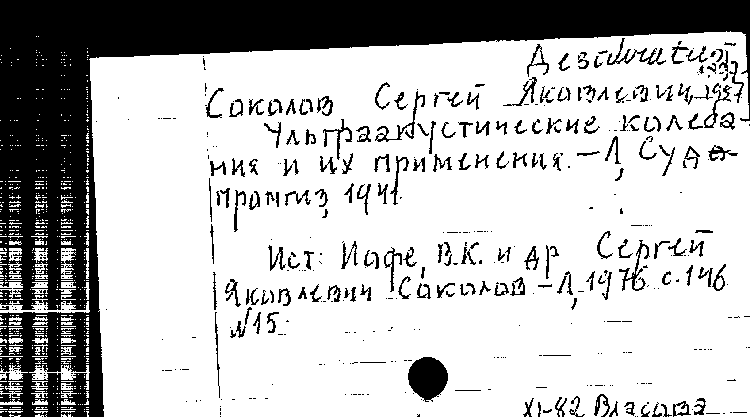 Дезiderat
Соколов Сергей Яковлевич, 1897-
Ультраакустические колеба-
ния и их применения. - Л, Судо-
промгиз, 1941.
Ист: Иофе, В.К. и др Сергей
Яковлевич Соколов - Л, 1976 с.146
N15.
XI-82 Власова